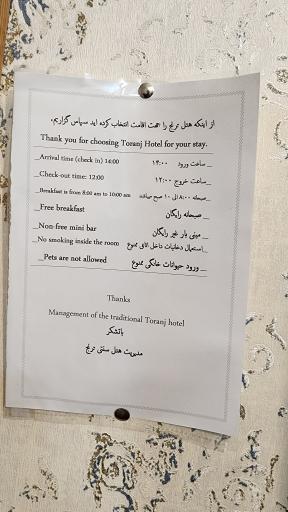 از اینکه هتل ترنج را جهت اقامت انتخاب کرده اید سپاس گزاریم.
Thank you for choosing Toranj Hotel for your stay.
_Arrival time (check in) 14:00 _ساعت ورود ۱۴:۰۰
_Check-out time: 12:00 _ساعت خروج ۱۲:۰۰
_Breakfast is from 8:00 am to 10:00 am _صبحانه ۸:۰۰ الی ۱۰ صبح میباشد
_Free breakfast _ صبحانه رایگان
_Non-free mini bar _ مینی بار غیر رایگان
_No smoking inside the room _استعمال دخانیات داخل اتاق ممنوع
_Pets are not allowed _ ورود حیوانات خانگی ممنوع
Thanks
Management of the traditional Toranj hotel
باتشکر
مدیریت هتل سنتی ترنج